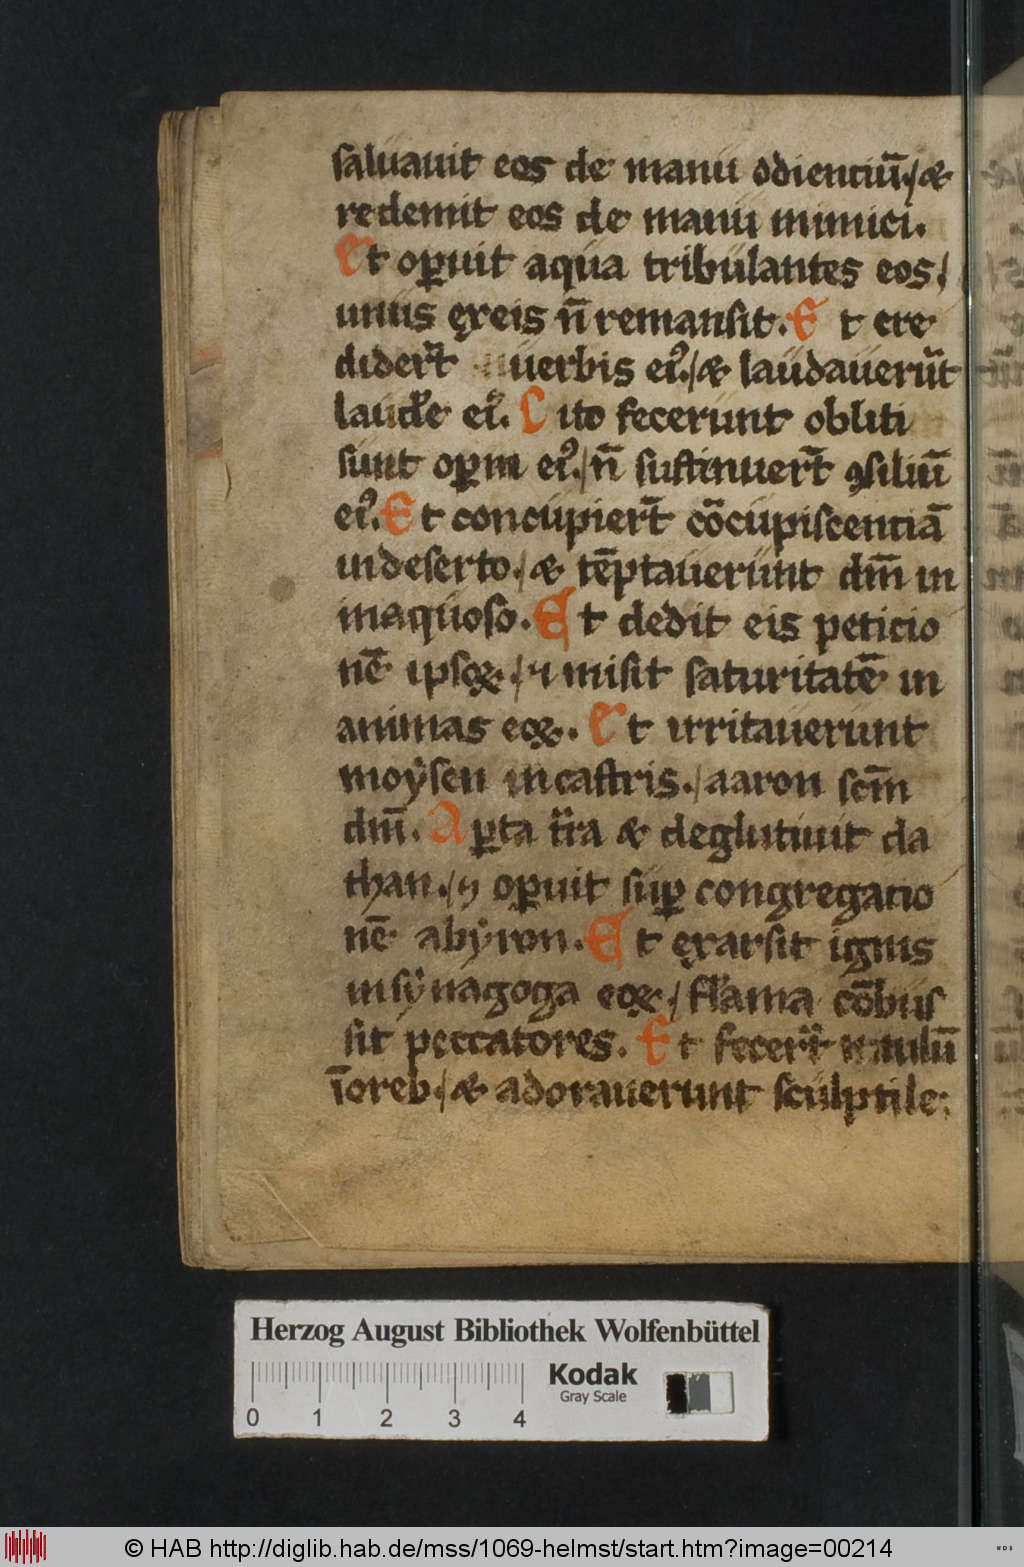 saluauit eos de manu odienciū./ &
redemit eos de manu inimici.
Et oꝑuit aqua tribulantes eos/
unus ęxeis n̄ remansit. Et cre
didert̄ uerbis eiꝰ./ & laudauerūt
laudē eiꝰ. Cito fecerunt obliti
sunt oꝑm eiꝰ./ n̄ sustinuert̄ ꝯsiliū
eiꝰ. Et concupiert̄ cōcupiscentiā
indeserto./ & tēptauerunt dm̄ in
inaquoso. Et dedit eis peticio
nē ipsoꝝ./ ⁊ misit saturitatē in
animas eoꝝ. Et irritauerunt
moẏsen incastris./ aaron scm̄
dm̄. Aꝑta t̄ra & deglutiuit da
than./ ⁊ oꝑuit suꝑ congregatio
nē abẏron. Et ęxarsit ignis
insẏnagoga eoꝝ./ flāma cōbus
sit peccatores. Et fecert̄ uitulū
īoreb./ & adorauerunt sculptile;
Herzog August Bibliothek Wolfenbüttel
Kodak
Gray Scale
0 1 2 3 4
© HAB http://diglib.hab.de/mss/1069-helmst/start.htm?image=00214